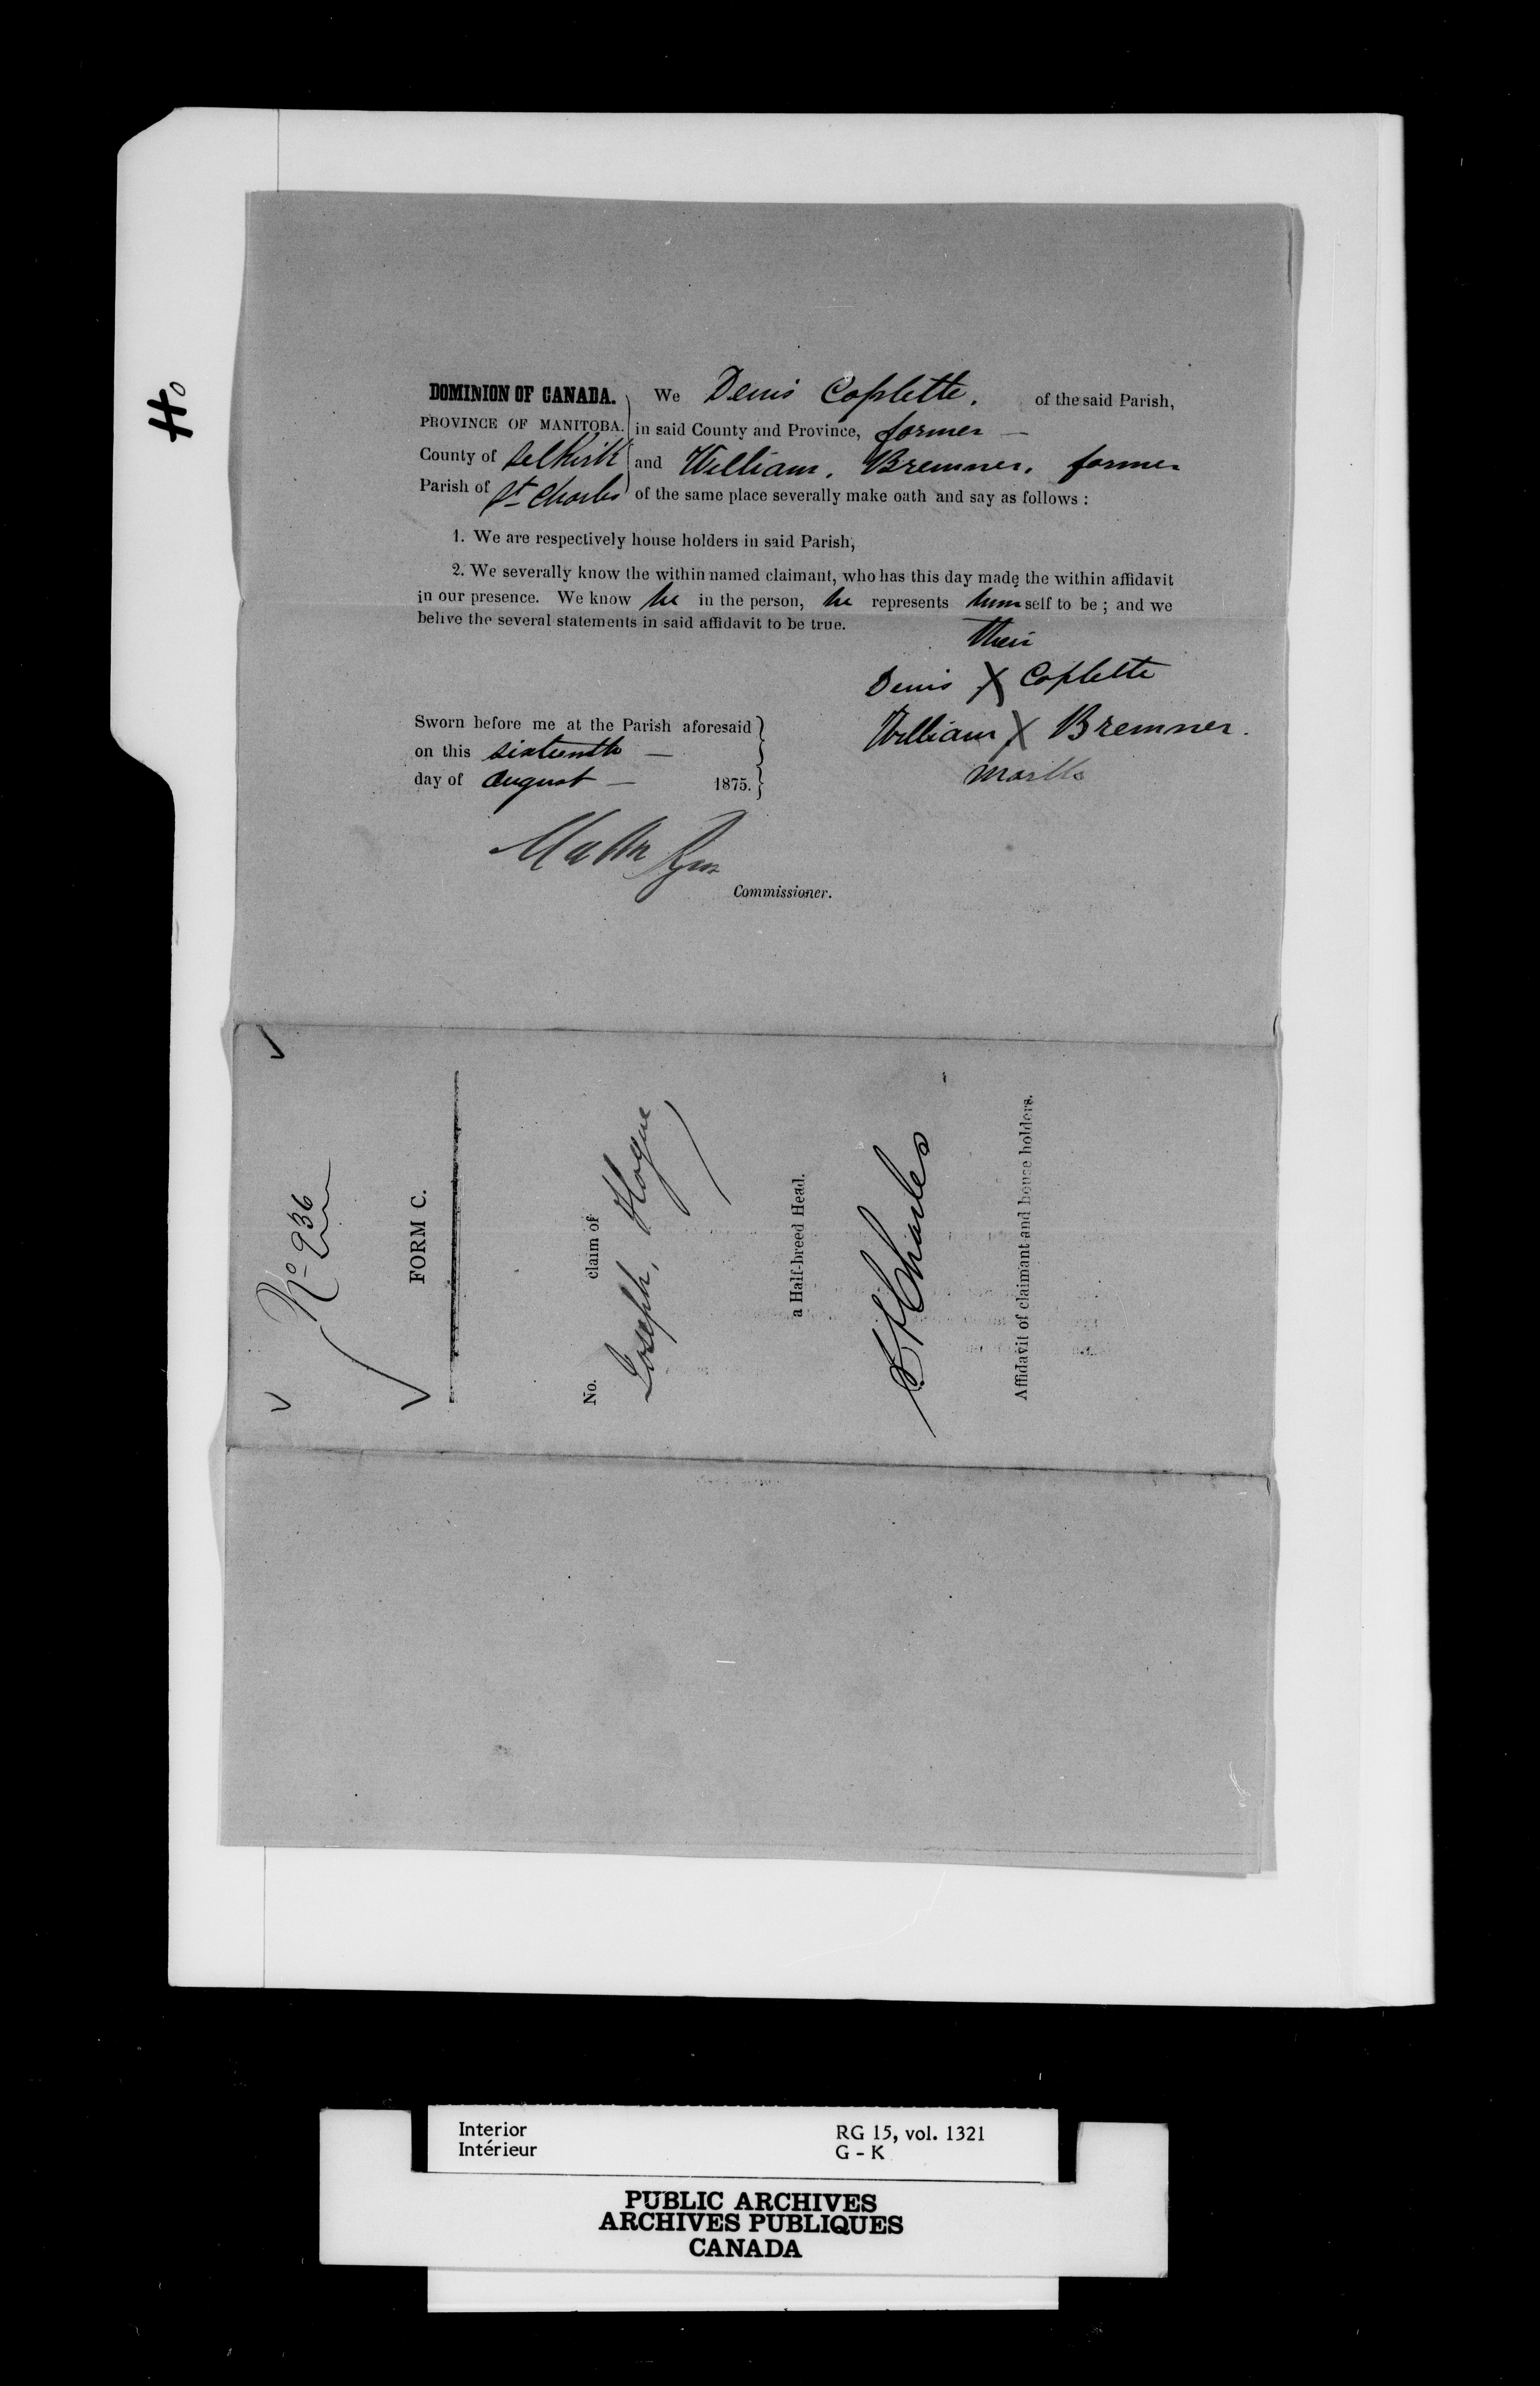 Ho
DOMINION OF CANADA.
PROVINCE OF MANITOBA.
County of Selkirk
Parish of St Charles
We Denis Coplette. of the said Parish,
in said County and Province, farmer —
and William. Bremner. farmer
of the same place severally make oath and say as follows :
1. We are respectively house holders in said Parish,
2. We severally know the within named claimant, who has this day made the within affidavit
in our presence. We know he in the person, he represents himself to be ; and we
belive the several statements in said affidavit to be true.
their
Denis X Coplette
William X Bremner.
marks
Sworn before me at the Parish aforesaid
on this sixteenth —
day of august — 1875.
Commissioner.
No 936
FORM C.
No. claim of
Joseph, Hogue
a Half-breed Head.
St Charles
Affidavit of claimant and house holders.
Interior
Intérieur
RG 15, vol. 1321
G - K
PUBLIC ARCHIVES
ARCHIVES PUBLIQUES
CANADA